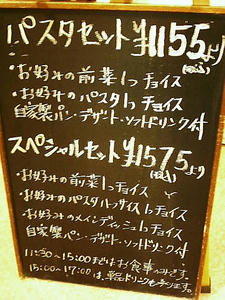 パスタセット ¥1155より
(税込)
・お好みの前菜1つチョイス
・お好みのパスタ1つチョイス
自家製パン・デザート・ソフトドリンク付
スペシャルセット ¥1575より
(税込)
・お好みの前菜1つチョイス
・お好みのパスタハーフサイズ1つチョイス
・お好みのメインディッシュ1つチョイス
自家製パン・デザート・ソフトドリンク付
11:30～15:00まではお食事
15:00～17:00は、単品ドリンクも